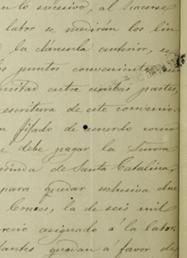 en lo sucesivo, al hacerse
labor se medirán los lin
la clausula anterior, en
los puntos convenientes
entre ambas partes,
escritura de este convenio
fijado de acuerdo como
debe pagar la Tierra
de Santa Catalina,
para quedar esclusiva de
la de seis mil
asignado á la labor
quedan á favor de